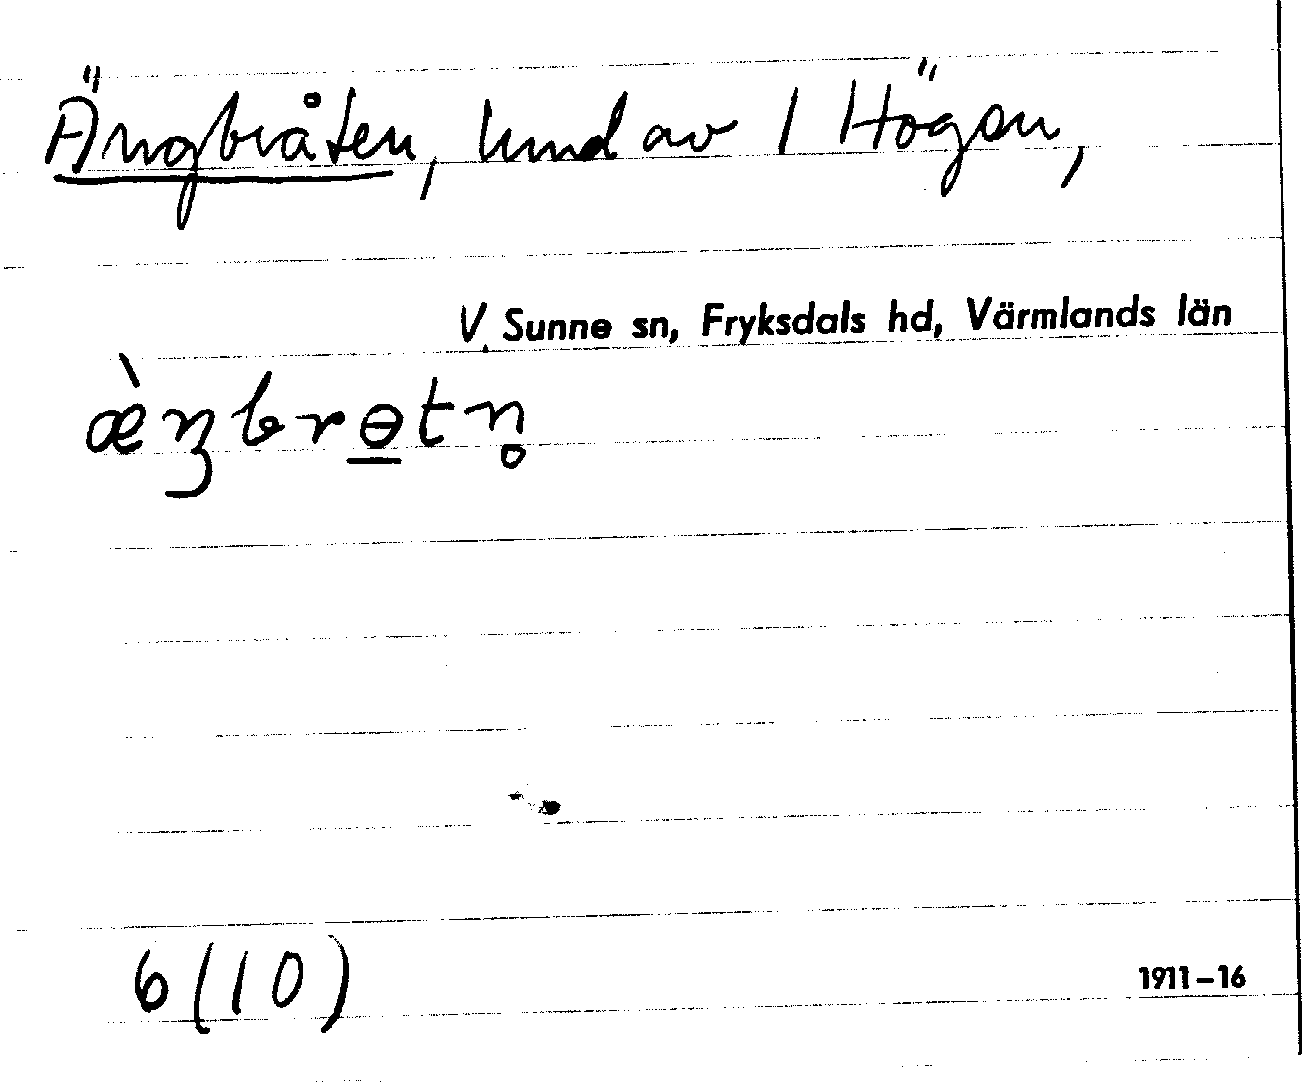 Ängbråten, lund av 1 Högen,
V. Sunne sn, Fryksdals hd, Värmlands län
æ̀ŋbrɵ̲tn̥
6 (10)
1911–16